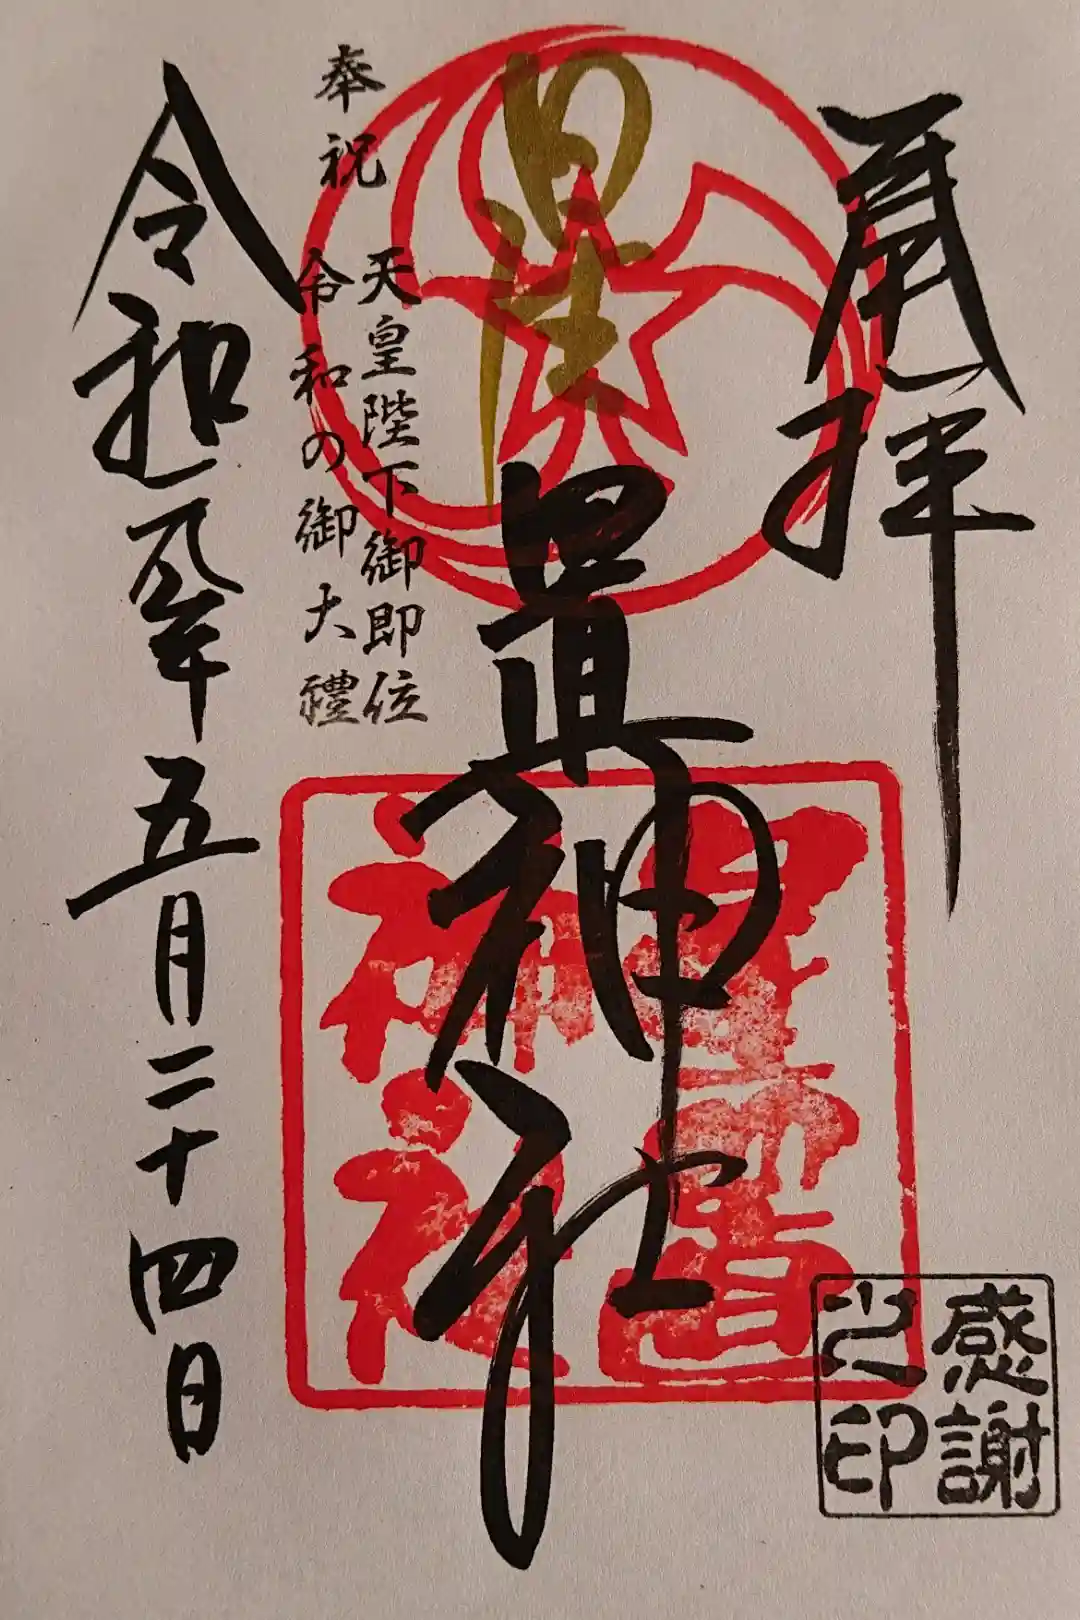 奉拝
星置神社
星置神社
奉祝
天皇陛下御即位
令和の御大禮
令和元年五月二十四日
感謝
之印